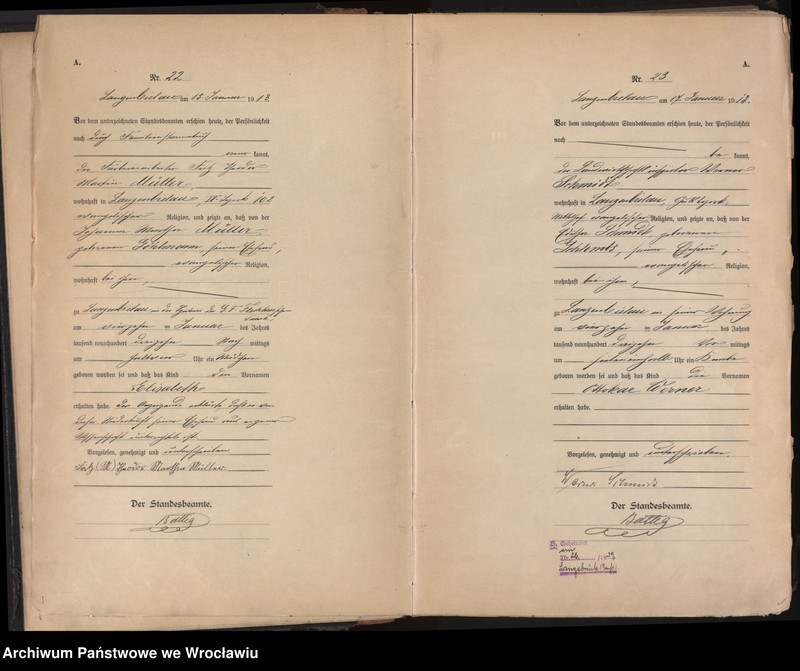 A.
Nr. 22
Langenbielau am 15 Januar 1913.
Vor dem unterzeichneten Standesbeamten erschien heute, der Persönlichkeit
nach durch Familienstammbuch
kannt,
der Fabrikarbeiter Fritz Theodor
Martin Müller,
wohnhaft in Langenbielau, IV. Bezirk 102
evangelischer Religion, und zeigte an, daß von der
Johanna Martha Müller
geborenen seiner Ehefrau,
evangelischer Religion,
wohnhaft bei ihm,
zu Langenbielau in
am vierzehn ten Januar des Jahres
tausend neunhundert dreizehn Nach mittags
um Uhr ein Mädchen
geboren worden sei und daß das Kind den Vornamen
Elisabeth
erhalten habe. Der Anzeigende erklärte daß er von
dieser Niederkunft seiner Ehefrau aus eigener
Wissenschaft unterrichtet ist.
Vorgelesen, genehmigt und unterschrieben
Fritz Theodor Martin Müller.
Der Standesbeamte.
Battig
A.
Nr. 23
Langenbielau am 17 Januar 1913.
Vor dem unterzeichneten Standesbeamten erschien heute, der Persönlichkeit
nach
be kannt,
der Landwirtschaftsinspektor Werner
Schmidt
wohnhaft in Langenbielau,
evangelischer Religion, und zeigte an, daß von der
Schmidt geborenen
seiner Ehefrau,
evangelischer Religion,
wohnhaft bei ihm,
zu Langenbielau in seiner Wohnung
am vierzehn ten Januar des Jahres
tausend neunhundert dreizehn Vor mittags
um Uhr ein Knabe
geboren worden sei und daß das Kind die Vornamen
Ottokar Werner
erhalten habe.
Vorgelesen, genehmigt und unterschrieben
Werner Schmidt
Der Standesbeamte.
Battig
Archiwum Państwowe we Wrocławiu